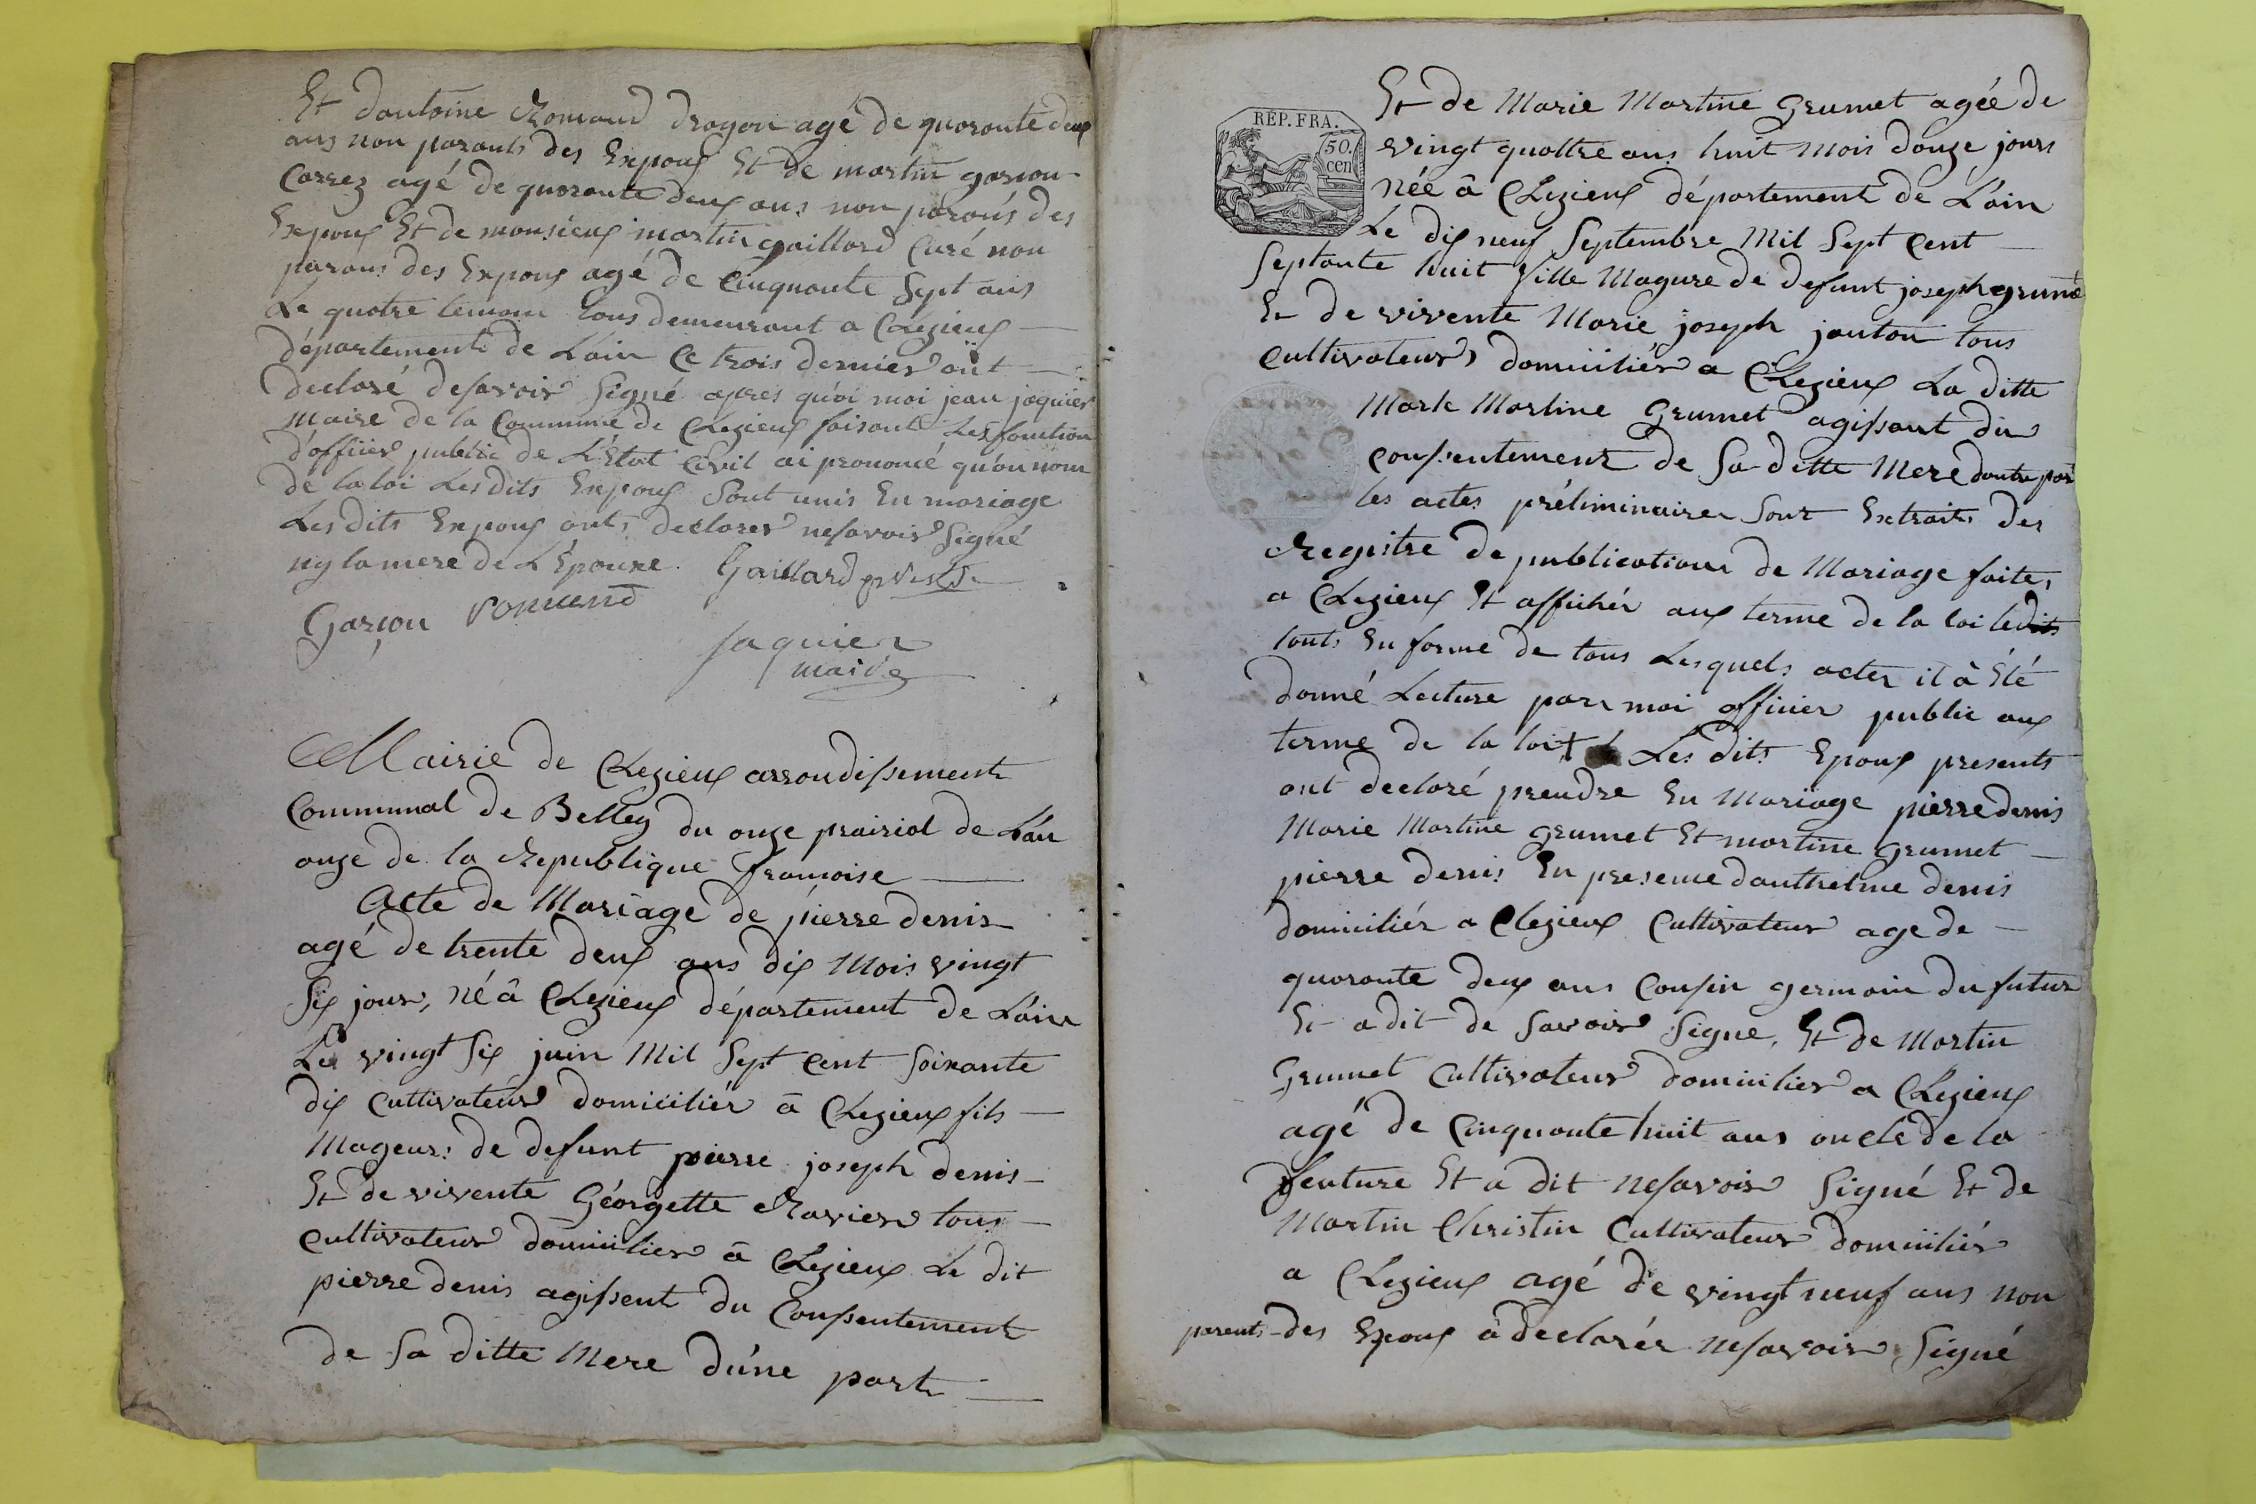 Et dantoine Romand dragon agé de quarante deux
ans non parants des Expoux Et de martin garson
Carrez agé de quarante deux ans non parans des
Expoux Et de monsieux martin gaillard Curé non
parans des Expoux agé de Cinquante Sept ans
Le quatre temoin tous demeurant a Chezieux
département de L'ain Ce trois dernier ont
declaré desavoir Signé apres quoi moi jean jaquier
Maire de la Commune de Chezieux faisant Les fonction
d'officier public de L'Etat Civil ai prononcé qu'au nom
de la loi Les dits Expoux Sont unis En mariage
Les dits Expoux onts declarer nesavoir Signé
ny la mere de L'Epouxe. Gaillard prestre
Garçon romand
Jaquier
maire
Mairie de Chezieux arrondissement
Communal de Belley du onze prairial de L'an
onze de la Republique francoise
Acte de Mariage de pierre denis
agé de trente deux ans dix Mois vingt
Six jours, né â Chezieux département de L'ain
Le vingt Six juin Mil Sept Cent Soixante
dix Cultivateur domiciliér â Chezieux fils
Mageurs de defunt pierre joseph denis
Et de vivente Géorgette Ravier tous
Cultivateur domicilier â Chezieux Le dit
pierre denis agissent du Conssentement
de Sa ditte Mere dúne part
REP. FRA.
50.
cen
Et de Marie Martine Grumet agée de
vingt quattre ans huit Mois douze jours
née â Chezieux département de L'ain
Le dix neuf Septembre Mil Sept Cent
Septante huit fille Magure de defunt joseph grumet
Et de vivente Marie joseph janton tous
Cultivateurs domiciliér a Chezieux La ditte
Marie Martine Grumet agissant du
Conssentement de Sa ditte Mere dautre par
les actes préliminaires Sont Extraits des
Registre de publications de Mariage faites
a Chezieux Et affichér aux terme de la loi ledits
touts En forme de tous Lesquels actes il â Été
donné Lecture par moi officier public aux
terme de la loi Les dits Epoux presents
ont declaré prendre En Mariage pierre denis
Marie Martine Grumet Et martine Grumet
pierre denis En presence danthelme denis
domiciliér a Chezieux Cultivateur age de
quarante deux ans Cousin germain du futur
Et a dit de Savoir Signe, Et de Martin
Grumet Cultivateur domicilier a Chezieux
agé de Cinquante huit ans oncle de la
feuture Et a dit nesavoir Signé Et de
Martin Christin Cultivateur domiciliér
a Chezieux agé de vingt neuf ans non
parents des Expoux â declarér nesavoir Signé